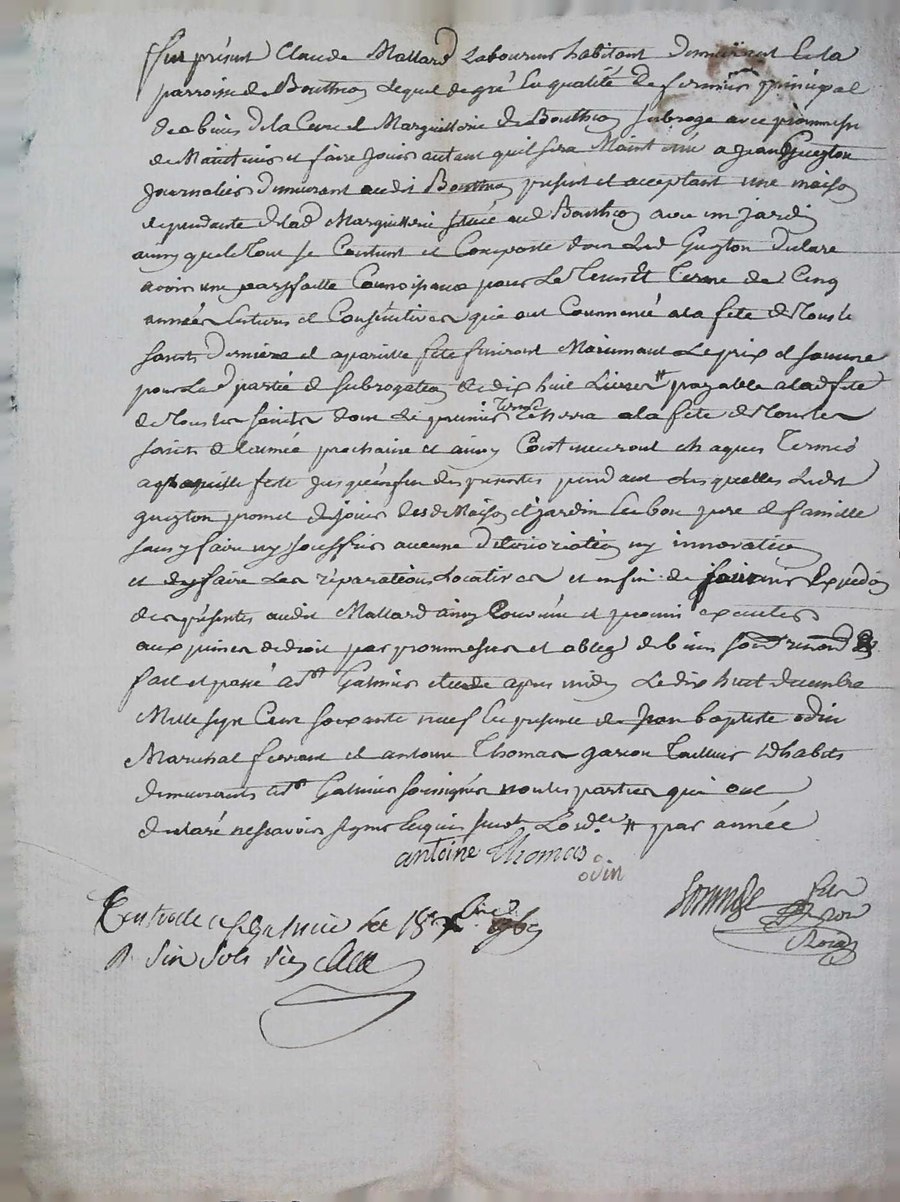 Fut présent Claude Mallard Laboureur habitant demeurant en la
parroisse de Bouthéon Lequel de gré En qualité de fermier principal
des biens de la Cure et Marguillerie de Bouthéon subroge avec promesse
de Maintenir et faire Jouir autant quil sera Maintenu a Jean Guyton
Journalier demeurant audit Bouthéon present et acceptant une maison
dependante de lad Marguillerie située aud Bouthéon avec un jardin
ainsy que le tout se Contient et Comporte dont Led Guyton declare
avoir une parfaitte Connoissance pour Le Tems Et Terme de Cinq
années Entieres et Consecutives qui ont Commencé a la fete de Tous les
saints derniere et a pareille fete finiront Moiennant Le prix et somme
pour La partie de subrogation de dix huit Livres payable a lad fete
de Tous les saints dont le premier Terme Echerra a la fete de Tous les
saints de lannée prochaine et ainsy Continueront chaques Termes
a pareille fete jusqu'en fin des presentes pendant Lesquelles Ledit
guyton promet de jouir desd Maison et jardin En bon pere de famille
sans y faire ny souffrir aucune deterioration ny innovation
et dy faire Les réparations Locatives et enfin de fournir Expedon
des présentes audit Mallard ainsy Convenu et promis executer
aux peines de droit par promesses et oblig de biens
fait et passé a st Galmier etude apres midy Le dix huit decembre
Mille sept Cent soixante neuf En presence de Jean baptiste odin
Marechal ferrant et antoine Thomas garçon Tailleur dhabits
demeurants a st Galmier soussignés non les parties qui ont
declaré ne scavoir signer Enquis par année
antoine Thomas
odin
Controllé a st Galmier Le 18
R Sin Sols